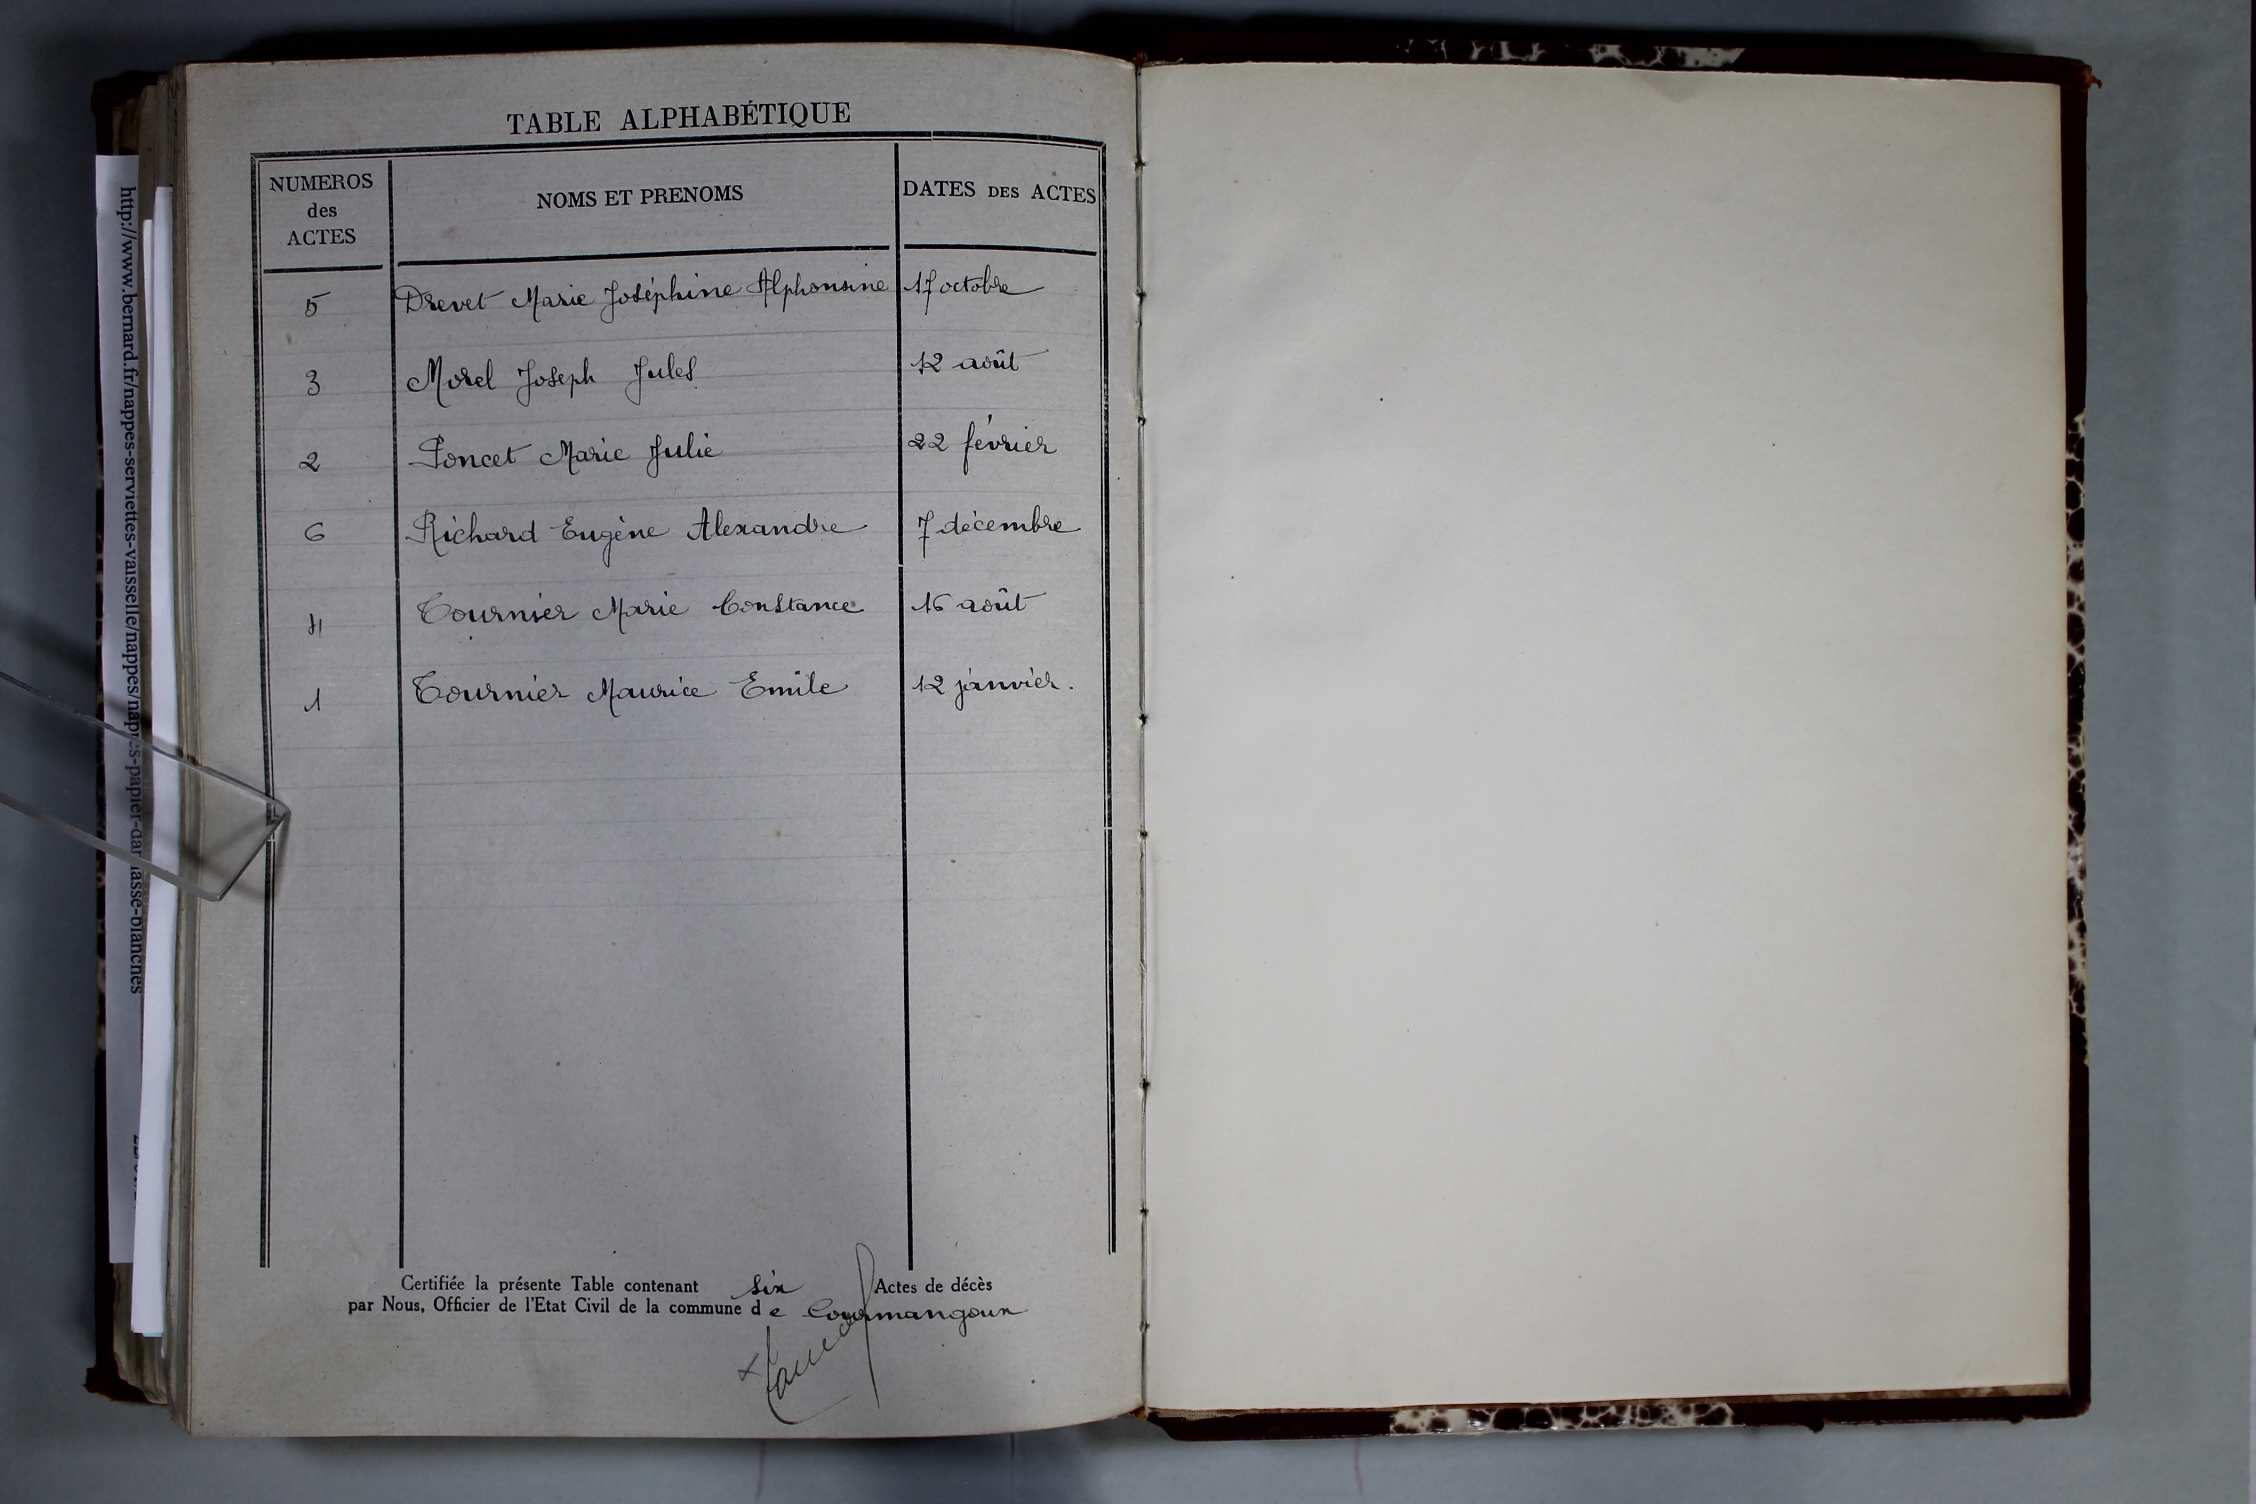 TABLE ALPHABÉTIQUE
NUMEROS des ACTES NOMS ET PRENOMS DATES DES ACTES
5 Drevet Marie Joséphine Alphonsine 17 octobre
3 Morel Joseph Jules 12 août
2 Poncet Marie Julie 22 février
6 Richard Eugène Alexandre 7 décembre
4 Tournier Marie Constance 16 août
1 Tournier Maurice Emile 12 janvier.
Certifiée la présente Table contenant six Actes de décès
par Nous, Officier de l'Etat Civil de la commune de Courmangoux
http://www.bernard.fr/nappes-serviettes-vaisselle/nappes/nappes-papier-damasse-blanches